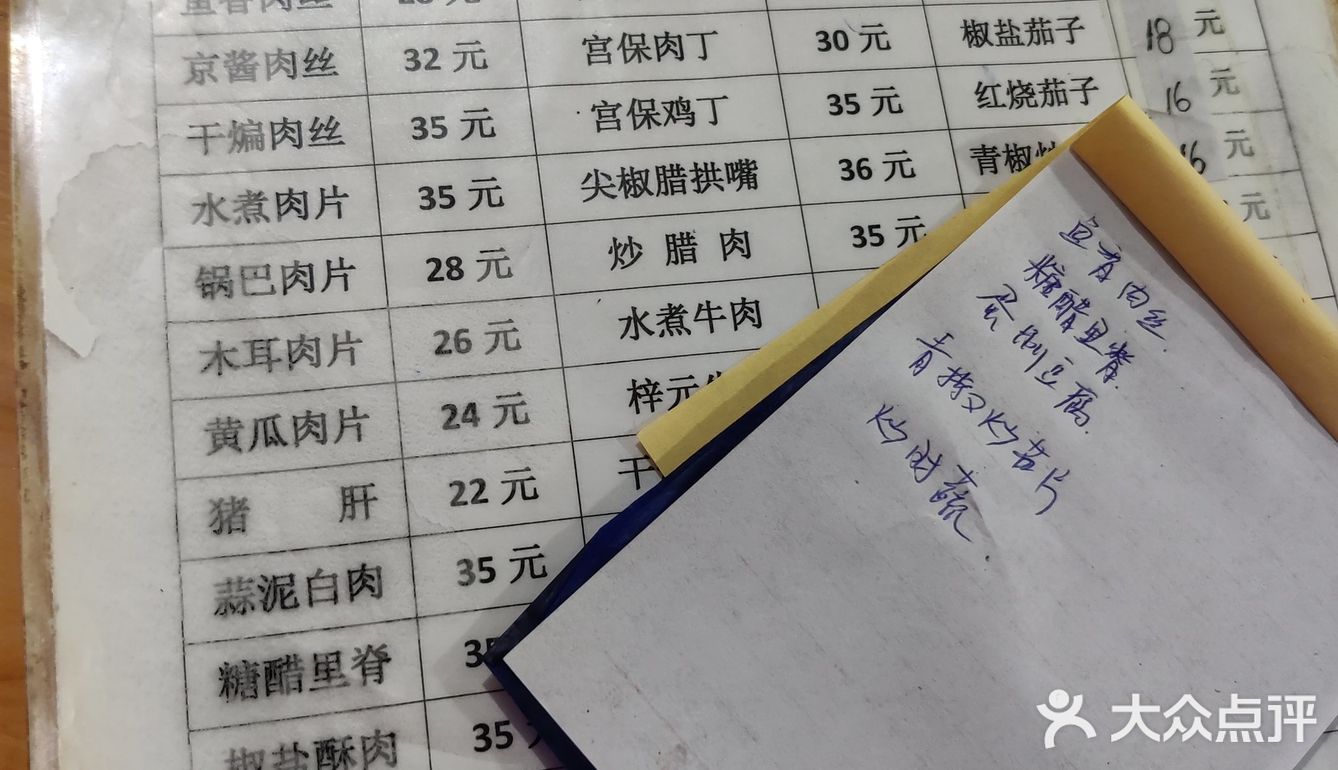 鱼香肉丝 28元
京酱肉丝 32元 宫保肉丁 30元 椒盐茄子 18元
干煸肉丝 35元 宫保鸡丁 35元 红烧茄子 16元
水煮肉片 35元 尖椒腊拱嘴 36元 青椒炒 16元
锅巴肉片 28元 炒腊肉 35元 元
木耳肉片 26元 水煮牛肉
黄瓜肉片 24元 梓元
猪肝 22元 干
蒜泥白肉 35元
糖醋里脊 35
椒盐酥肉 35元
鱼香肉丝
糖醋里脊
家常豆腐
青椒炒茄片
炒时蔬
大众点评